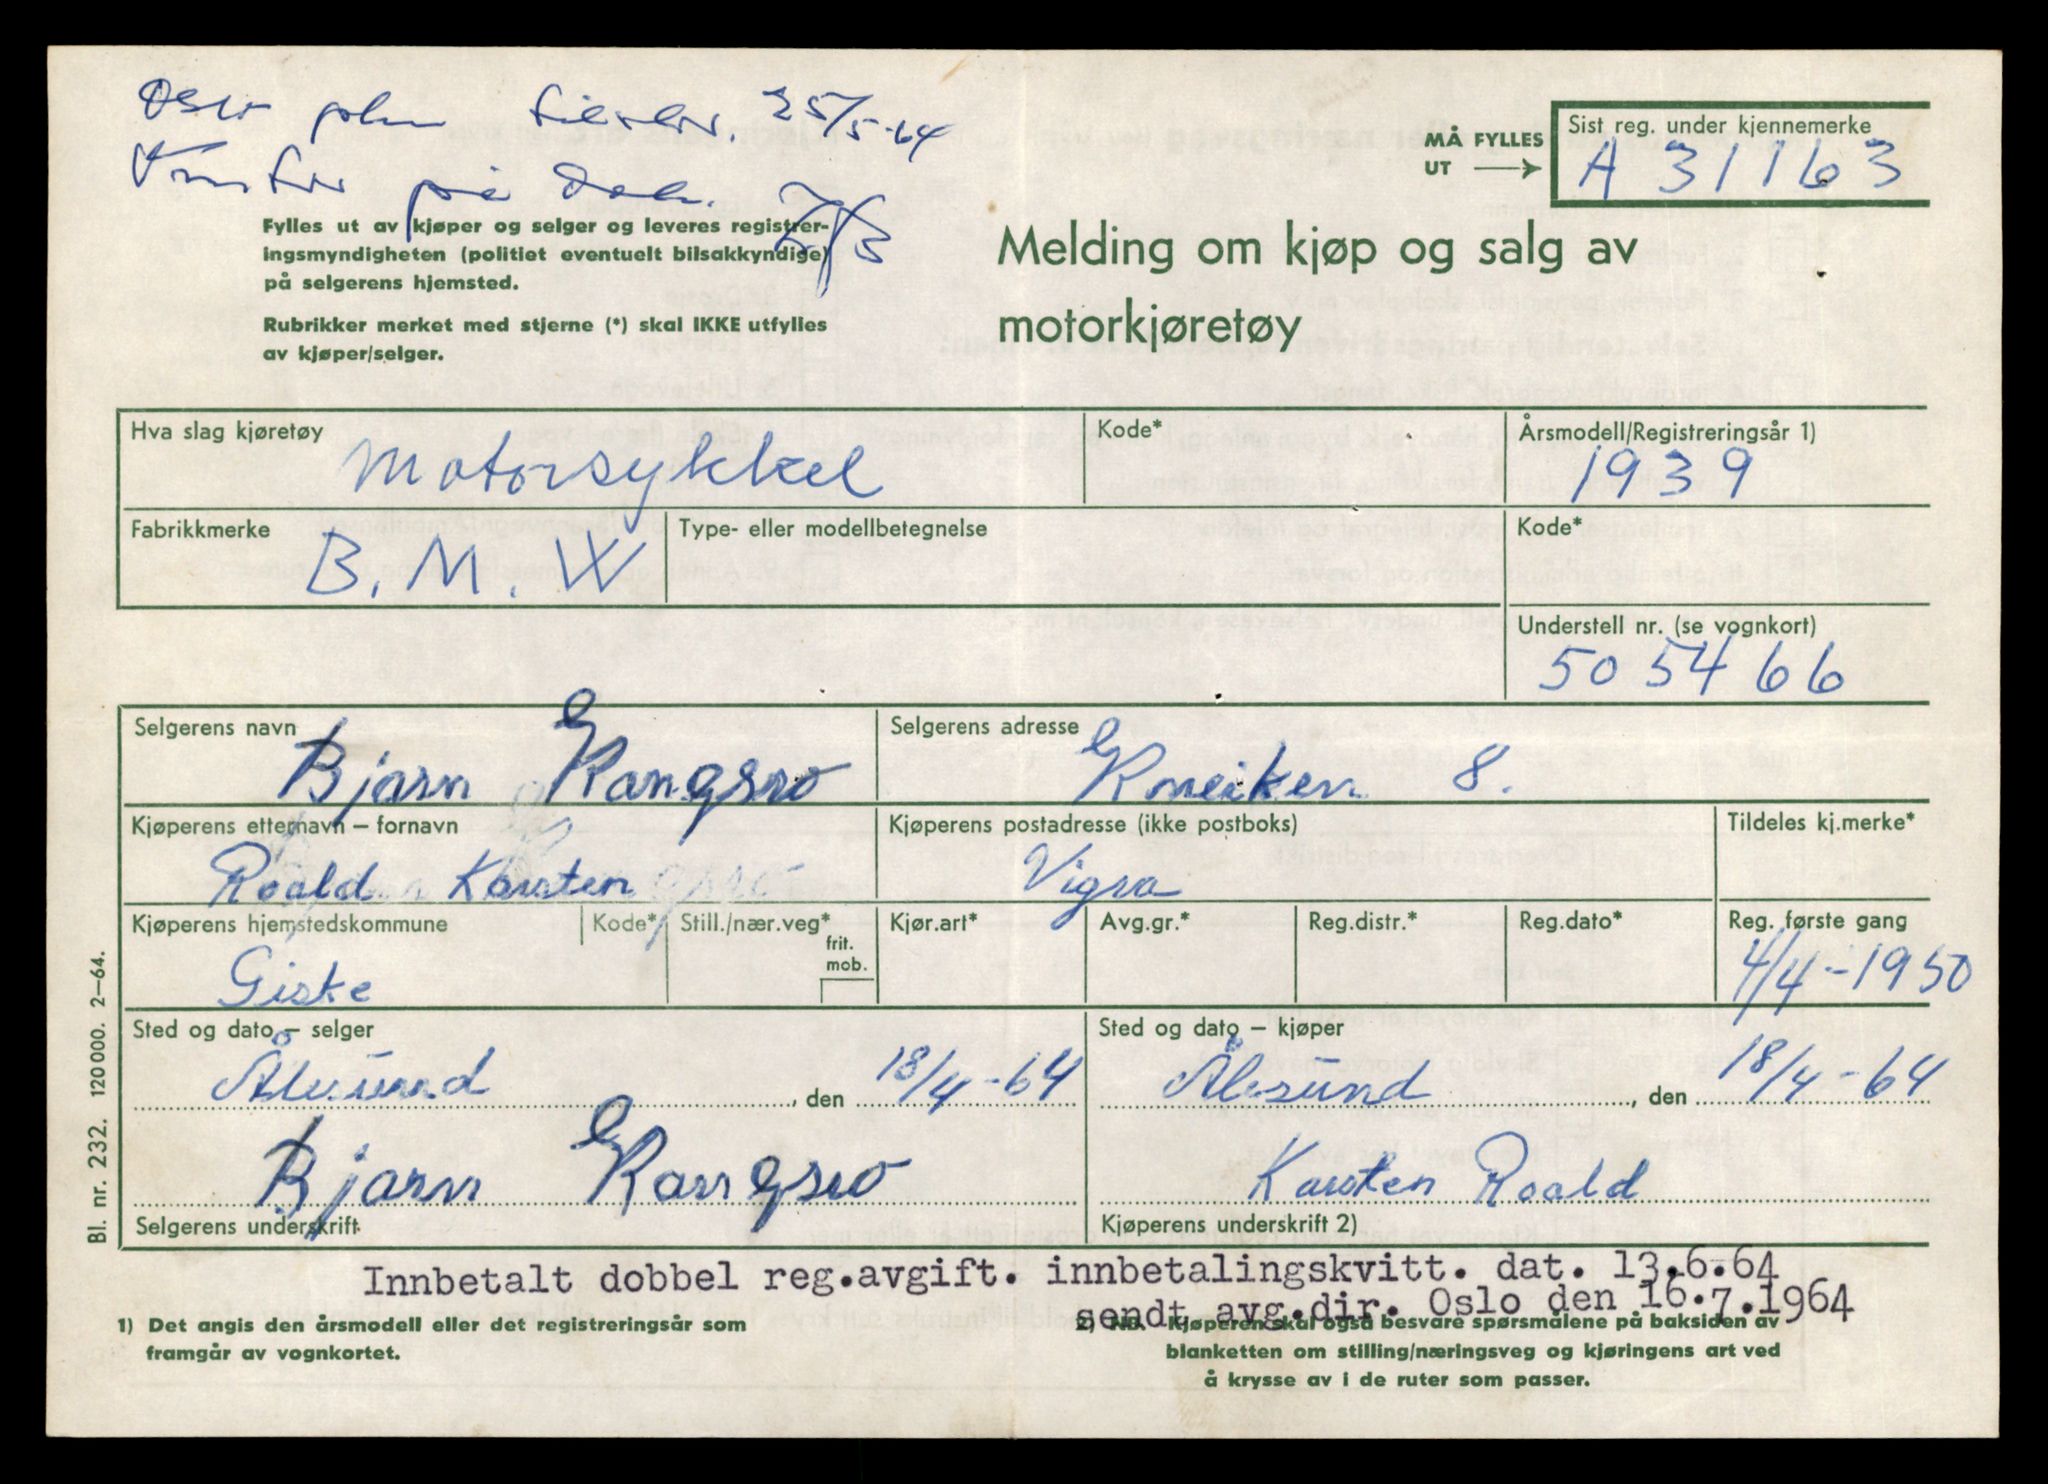 Oslo 25/5-64
på
MÅ FYLLES
UT
Sist reg. under kjennemerke
A 31163
Fylles ut av kjøper og selger og leveres registrer-
ingsmyndigheten (politiet eventuelt bilsakkyndige)
på selgerens hjemsted.
Rubrikker merket med stjerne (*) skal IKKE utfylles
av kjøper/selger.
Melding om kjøp og salg av
motorkjøretøy
Hva slag kjøretøy
Motorsykkel
Kode*
Årsmodell/Registreringsår 1)
1939
Fabrikkmerke
B. M. W
Type- eller modellbetegnelse
Kode*
Understell nr. (se vognkort)
505466
Selgerens navn
Bjørn Kongsro
Selgerens adresse
Kneiken 8.
Kjøperens etternavn – fornavn
Roald Karsten
Kjøperens postadresse (ikke postboks)
Vigra
Tildeles kj.merke*
Kjøperens hjemstedskommune
Giske
Kode*
Still./nær.veg*
frit.
mob.
Kjør.art*
Avg.gr.*
Reg.distr.*
Reg.dato*
Reg. første gang
4/4-1950
Sted og dato – selger
Ålesund, den 18/4-64
Sted og dato – kjøper
Ålesund, den 18/4-64
Bjørn Kongsro
Selgerens underskrift
Karsten Roald
Kjøperens underskrift 2)
Bl. nr. 232. 120 000. 2–64.
Innbetalt dobbel reg.avgift. innbetalingskvitt. dat. 13.6.64
sendt avg.dir. Oslo den 16.7.1964
1) Det angis den årsmodell eller det registreringsår som
framgår av vognkortet.
2) NB. Kjøperen skal også besvare spørsmålene på baksiden av
blanketten om stilling/næringsveg og kjøringens art ved
å krysse av i de ruter som passer.